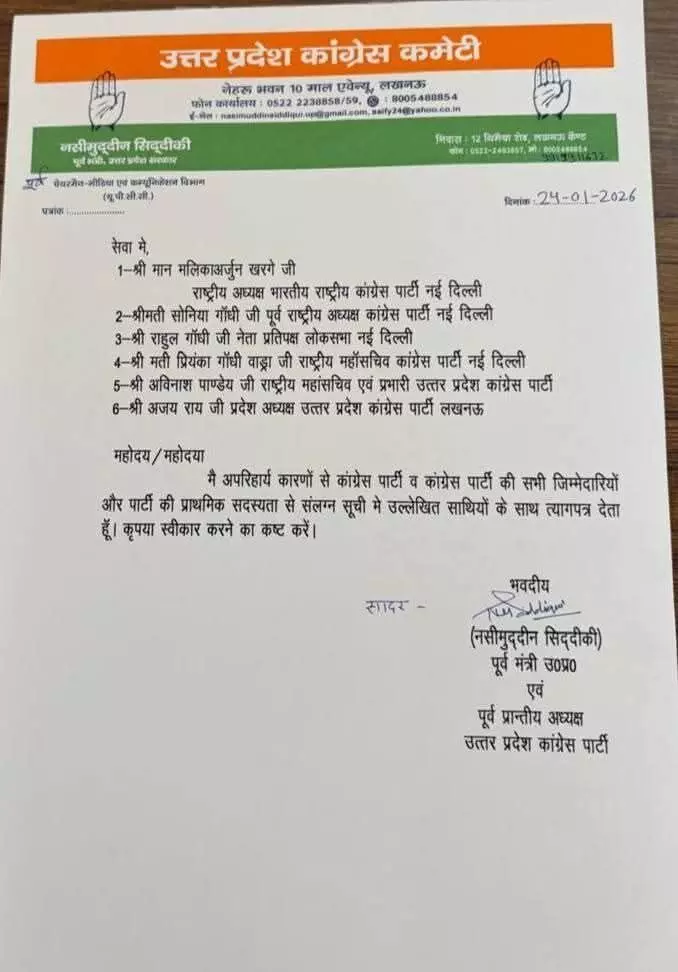 उत्तर प्रदेश कांग्रेस कमेटी
नेहरू भवन 10 माल एवेन्यू, लखनऊ
फोन कार्यालय : 0522 2238858/59, : 8005488854
ई-मेल : nasimuddinsiddiqui.up@gmail.com, saify24@yahoo.co.in
नसीमुद्दीन सिद्दीकी
पूर्व मंत्री, उत्तर प्रदेश सरकार
निवास : 12 रोड, लखनऊ कैण्ट
फोन : 0522-2493857, मो : 8005488854
9919911672
पूर्व चेयरमैन-मीडिया एवं कम्यूनिकेशन विभाग
(यू.पी.सी.सी.)
पत्रांक :......................
दिनांक : 24-01-2026
सेवा मे,
1–श्री मान मलिकाअर्जुन खरगे जी
राष्ट्रीय अध्यक्ष भारतीय राष्ट्रीय कांग्रेस पार्टी नई दिल्ली
2–श्रीमती सोनिया गॉधी जी पूर्व राष्ट्रीय अध्यक्ष कांग्रेस पार्टी नई दिल्ली
3–श्री राहुल गॉधी जी नेता प्रतिपक्ष लोकसभा नई दिल्ली
4–श्री मती प्रियंका गॉधी वाड्रा जी राष्ट्रीय महॉसचिव कांग्रेस पार्टी नई दिल्ली
5–श्री अविनाश पाण्डेय जी राष्ट्रीय महांसचिव एवं प्रभारी उत्तर प्रदेश कांग्रेस पार्टी
6–श्री अजय राय जी प्रदेश अध्यक्ष उत्तर प्रदेश कांग्रेस पार्टी लखनऊ
महोदय/महोदया
मै अपरिहार्य कारणों से कांग्रेस पार्टी व कांग्रेस पार्टी की सभी जिम्मेदारियों
और पार्टी की प्राथमिक सदस्यता से संलग्न सूची मे उल्लेखित साथियों के साथ त्यागपत्र देता
हूॅ। कृपया स्वीकार करने का कष्ट करें।
भवदीय
सादर -
(नसीमुद्दीन सिद्दीकी)
पूर्व मंत्री उ0प्र0
एवं
पूर्व प्रान्तीय अध्यक्ष
उत्तर प्रदेश कांग्रेस पार्टी